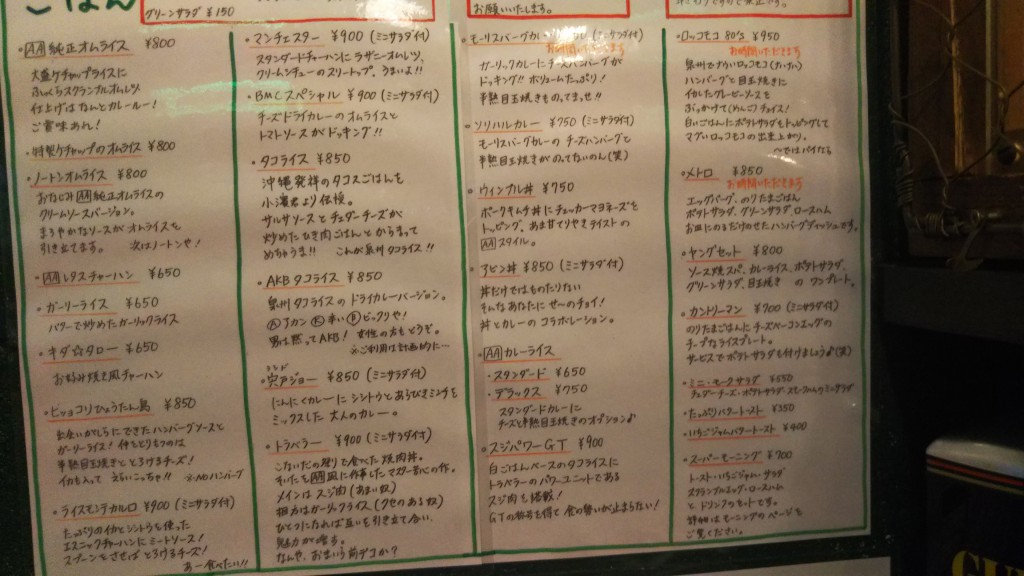 ごはん
グリーンサラダ ¥150
お願いいたします。
・AA 純正オムライス ¥800
大盛ケチャップライスに
ふっくらスクランブルオムレツ
仕上げはなんとカレールー!
ご賞味あれ!
・特製ケチャップのオムライス ¥800
・ノートンオムライス ¥800
おなじみAA純正オムライスの
クリームソースバージョン。
まろやかなソースがオムライスを
引き立てます。 次はノートンや!
・AA レタスチャーハン ¥650
・ガーリーライス ¥650
パワーで炒めたガーリックライス
・キダ☆タロー ¥650
お好み焼き風チャーハン
・ヒョッコリひょうたん島 ¥850
出会いがしらにできたハンバーグソースと
ガーリーライス!
半熟目玉焼きととろけるチーズ!
イカも入って えらいこっちゃ!! ※AAのハンバーグ
・ライスモンテカルロ ¥900 (ミニサラダ付)
たっぷりのイカとシシトウを使った
エスニックチャーハンにミートソース!
スプーンをさせば とろけるチーズ!
あー食べたい!!
・マンチェスター ¥900 (ミニサラダ付)
スタンダードチャーハンに ラザニーオムレツ、
クリームシチューのスリートップ。うまいよ!!
・BMCスペシャル ¥900 (ミニサラダ付)
チーズドライカレーの オムライスと
トマトソースが ドッキング!!
・タコライス ¥850
沖縄発祥のタコスごはんを
小濱君より伝授。
サルサソースとチェダーチーズが
炒めたひき肉ごはんと からまって
めちゃうま!! これが泉州タコライス!!
・AKBタコライス ¥850
泉州タコライスの ドライカレーバージョン。
Aアカン K辛い Bビックリや!
男は黙ってAKB! 女性の方もどうぞ。
※ご利用は計画的に…
・宍戸ジョー ¥850 (ミニサラダ付)
にんにくカレーに シシトウとあらびきミンチを
ミックスした 大人のカレー。
・トラベラー ¥900 (ミニサラダ付)
こないだの祭りで食べた焼肉丼。
メインはスジ肉 (あまい奴)
相方はガーリックライス (クセのある奴)
ひとつになれば 互いを引き立て合い
魅力が増る。
なんや、おまいら前デコか?
・モーリスバーグカレー (ミニサラダ付)
お時間いただきます
ガーリックカレーにチーズハンバーグが
ドッキング!! ボリュームたっぷり!
半熟目玉焼きものてまっせ!!
・ソリハルカレー ¥750 (ミニサラダ付)
モーリスバーグカレーの チーズハンバーグと
半熟目玉焼きが のってないのん(笑)
・ウィンブル丼 ¥750
ポークキムチ丼に チェッカーマヨネーズを
トッピング、あま甘てりやきテイストの
AAスタイル。
・アビン丼 ¥850 (ミニサラダ付)
丼だけではものたりない
そんなあなたに ぜ〜のチョイ!
丼とカレーの コラボレーション。
・AA カレーライス
・スタンダード ¥650
・デラックス ¥750
スタンダードカレーに
チーズと半熟目玉焼きのオプション♪
・スジパワーGT ¥900
白ごはんベースのタコライスに
トラベラーの パワーユニットである
スジ肉を搭載!
GTの称号を得て 食の勢いが止まらない!
・ロッコモコ 80's ¥950
お時間いただきます
泉州でかいロッコモコ(たけぃ)
ハンバーグと目玉焼きに
イカしたグレービーソースを
ぶっかけて(めんご)チョイ!
白いごはんにポテトサラダもトッピングして
マブいロッコモコの出来上がり。
〜ではバイなら
・メトロ ¥850
お時間いただきます
エッグバーグ、のりたまごはん
ポテトサラダ、グリーンサラダ、ロースハム
お皿にのるだけのせたハンバーグディッシュです。
・ヤングセット ¥800
ソース焼スパ、カレーライス、ポテトサラダ、
グリーンサラダ、目玉焼き の ワンプレート。
・カントリーマン ¥700 (ミニサラダ付)
のりたまごはんに チーズベーコンエッグの
チープなライスプレート。
サービスでポテトサラダも付けましょう♪(笑)
・ミニ・モークサラダ ¥550
チェダーチーズ・ポテトサラダ・スモークハムのミニサラダ
・たっぷりバタートースト ¥350
・いちごジャムバタートースト ¥400
・スーパーモーニング ¥700
トースト・いちごジャム・サラダ
スクランブルエッグ・ロースハム
と、ドリンクのセットです。
詳細はモーニングのページを
ご覧ください。